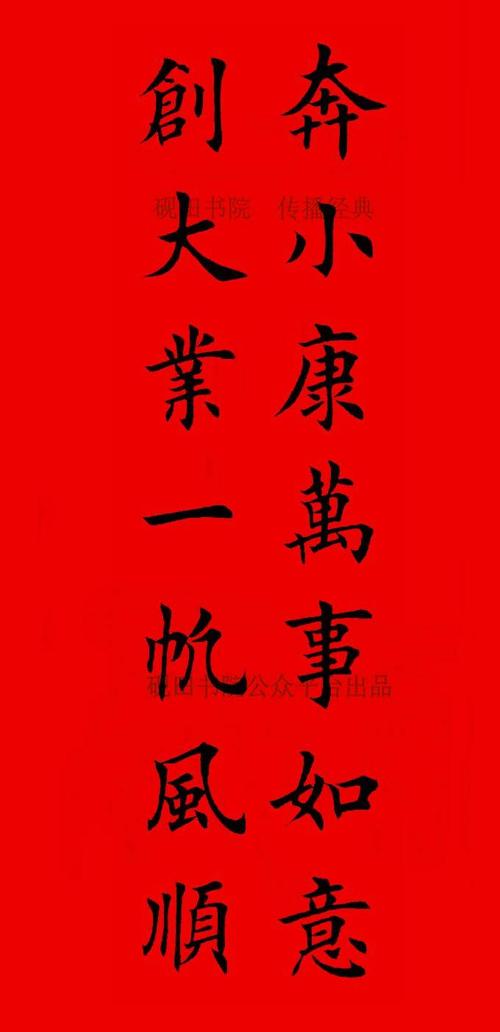 奔小康萬事如意
創大業一帆風順
砚田书院 传播经典
砚田书院公众平台出品